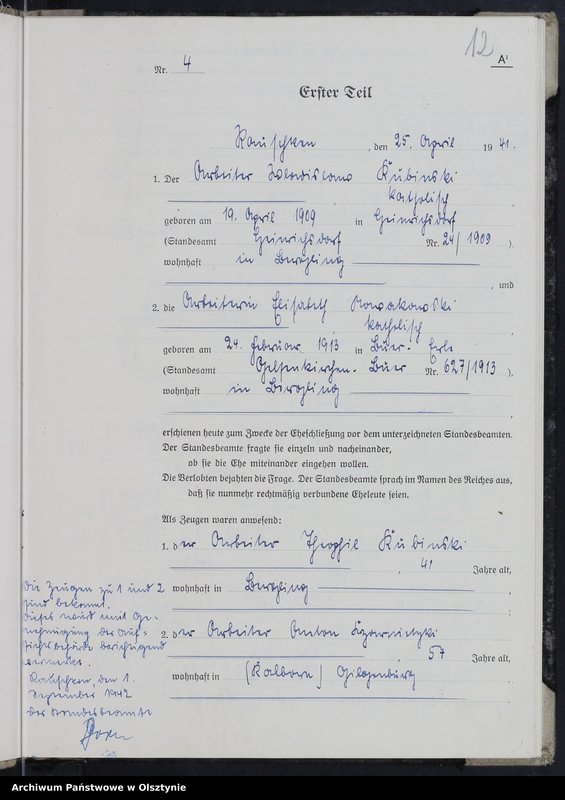 12
A¹
Nr. 4
Erster Teil
Rauschken, den 25. April 1941.
1. Der Arbeiter Wladislaw Kubinski
katholisch,
geboren am 19. April 1909 in Heinrichsdorf
(Standesamt Heinrichsdorf Nr. 24/1909).
wohnhaft in
, und
2. die Arbeiterin Elisabeth Nowakowski
katholisch,
geboren am 24. Februar 1913 in Buer-Erle
(Standesamt Gelsenkirchen-Buer Nr. 627/1913).
wohnhaft in
erschienen heute zum Zwecke der Eheschließung vor dem unterzeichneten Standesbeamten.
Der Standesbeamte fragte sie einzeln und nacheinander,
ob sie die Ehe miteinander eingehen wollen.
Die Verlobten bejahten die Frage. Der Standesbeamte sprach im Namen des Reiches aus,
daß sie nunmehr rechtmäßig verbundene Eheleute seien.
Als Zeugen waren anwesend:
1. der Arbeiter Theophil Kubinski
, 41 Jahre alt,
wohnhaft in
2. der Arbeiter Anton
, 57 Jahre alt,
wohnhaft in (Kalborn) Gilgenburg
Die Zeugen zu 1 und 2
sind bekannt.
Dieses wird mit Ge-
nehmigung der Auf-
sichtsbehörde berichtigend
vermerkt.
Rauschken, den 1.
September 1942
Der Standesbeamte
Archiwum Państwowe w Olsztynie